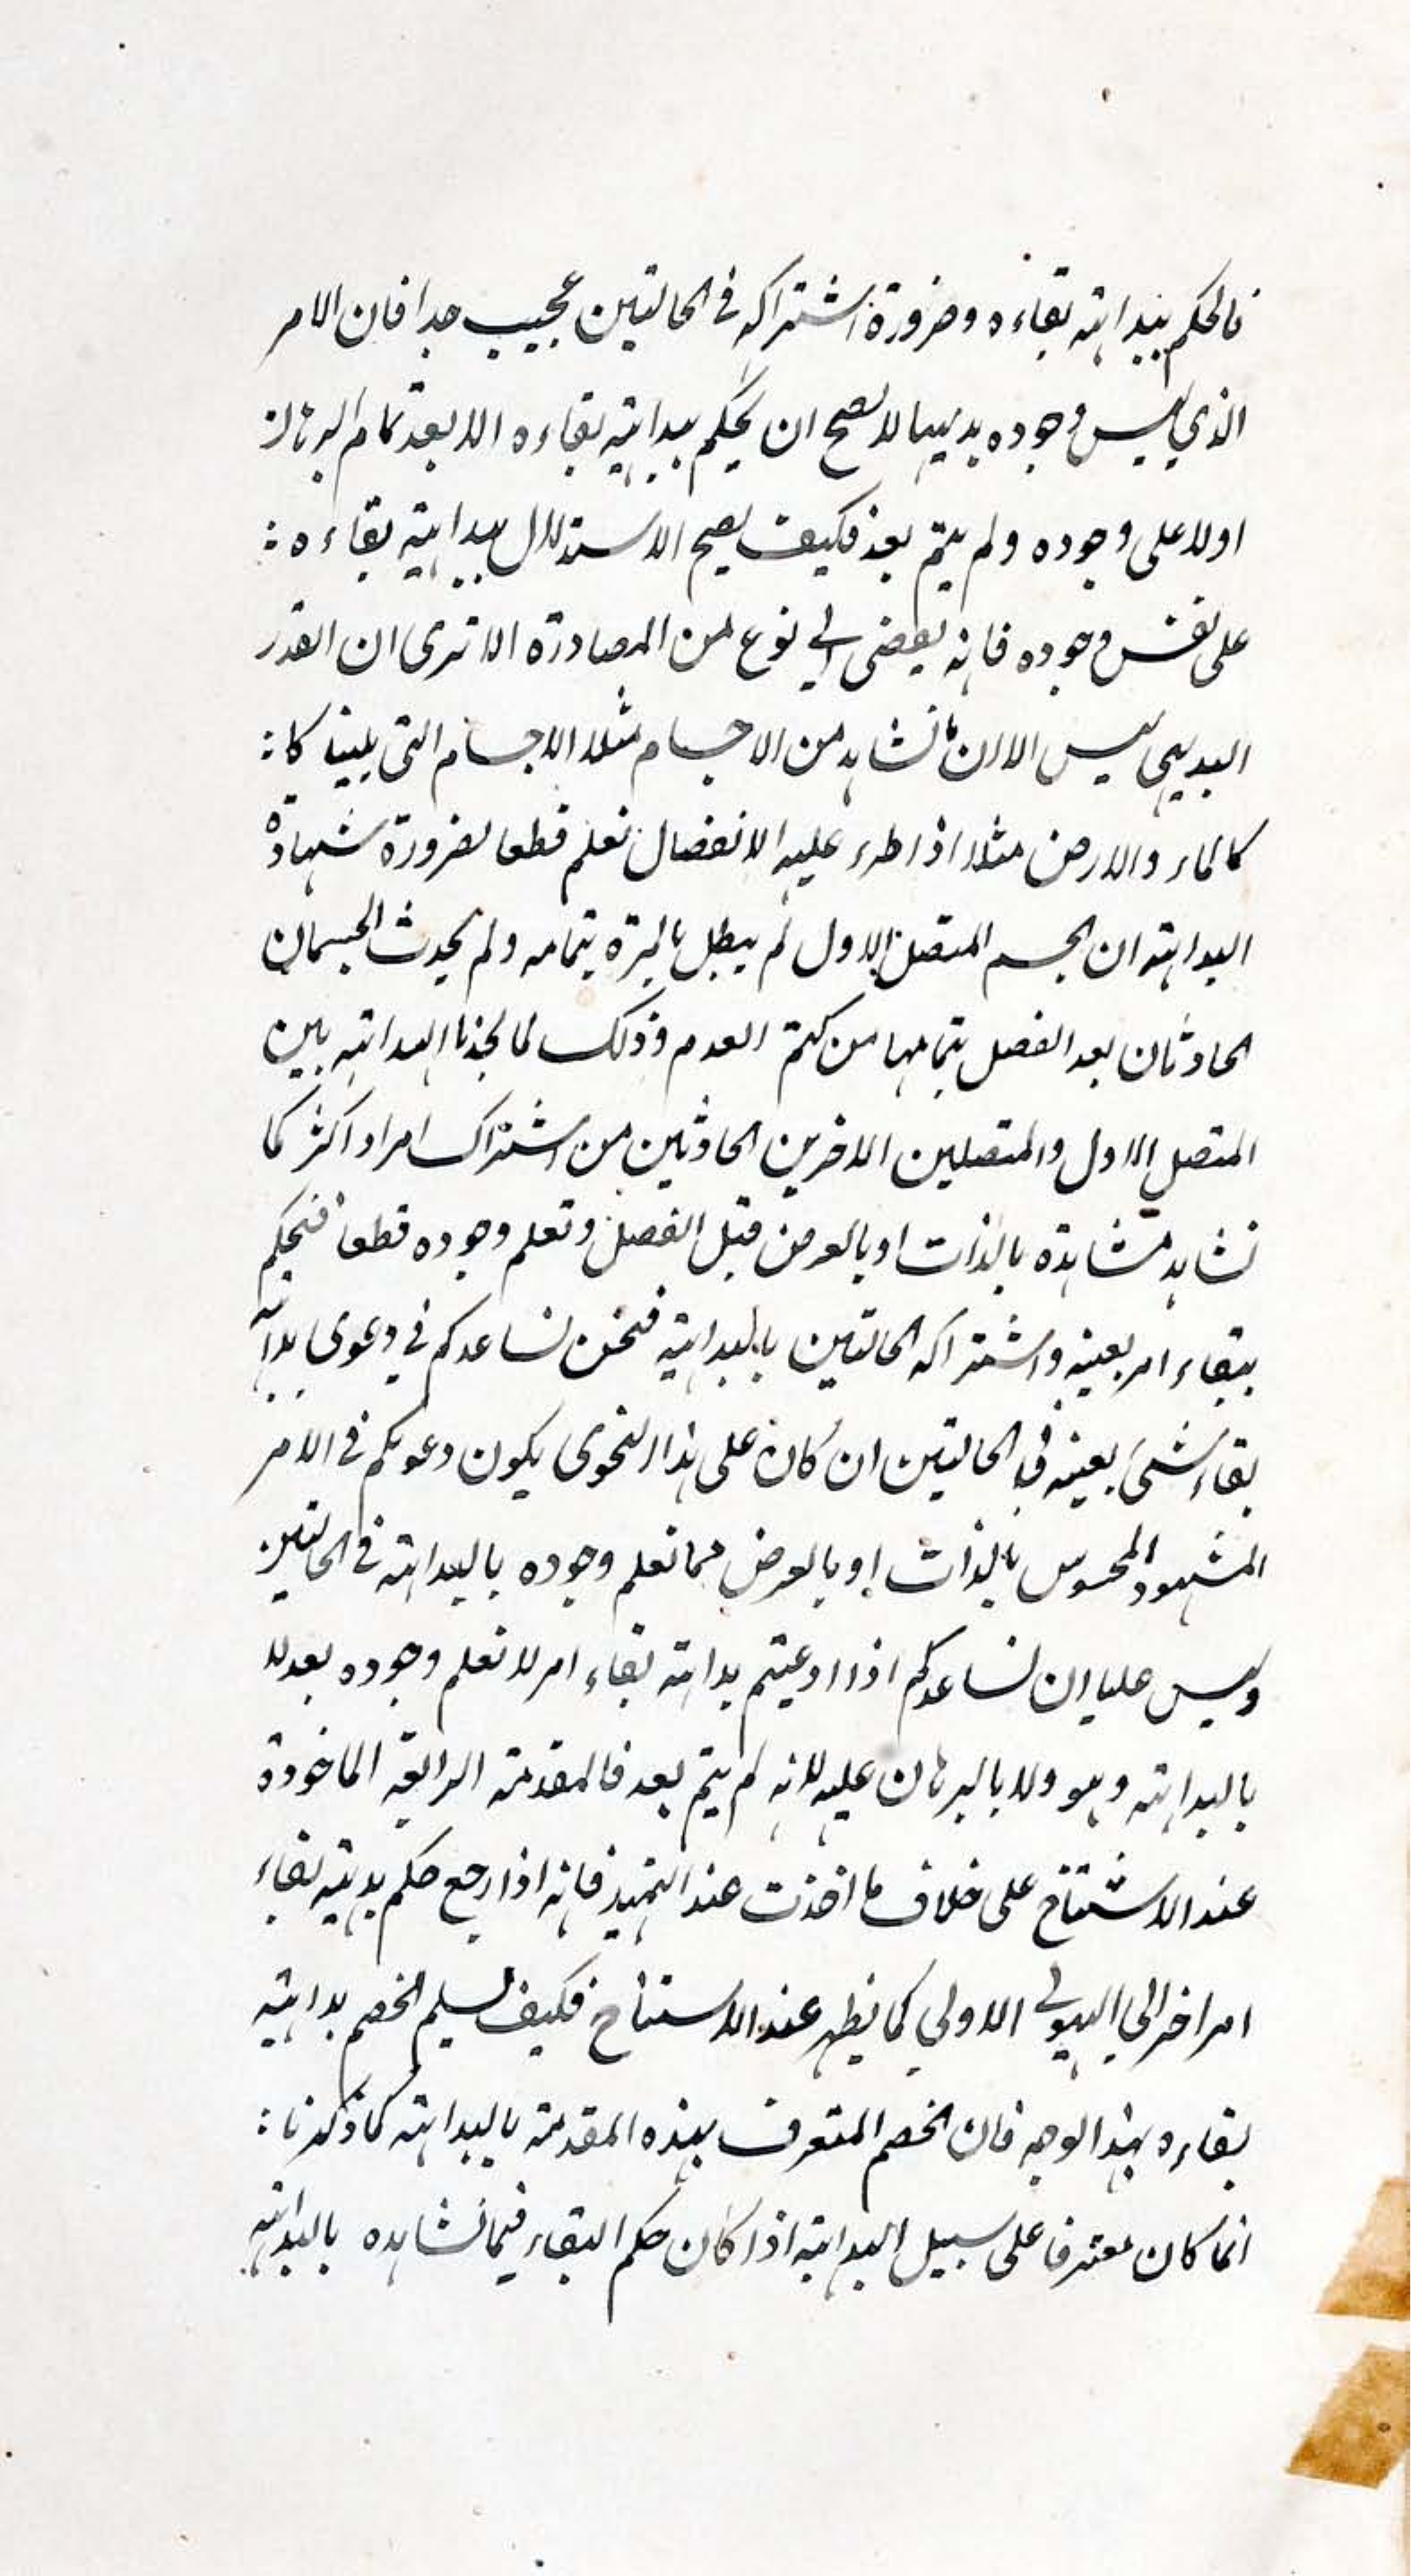 فالحكم ببداهته بقاءه وضرورة اشتراكه في الحالتين عجيب جدا فان الامر
الذي ليس وجوده بديهيا لا يصح ان يحكم ببداهته بقاءه الا بعد تمام البرهان
اولا على وجوده ولم يتم بعد فكيف يصح الاستدلال ببداهته بقاءه
على نفس وجوده فانه يفضى الي نوع من المصادرة الا ترى ان القدر
البديهى ليس الا ان ما نشاهد من الاجسام مثلا الاجسام التى يلينا كا
كالماء والارض مثلا اذا طرء عليه الانفصال نعلم قطعا لضرورة شهادة
البداهته ان الجسم المتصل الاول لم يبطل بالمرة بتمامه ولم يحدث الجسمان
الحادثان بعد الفصل بتمامهما من كتم العدم وذلك لما يجدنا البداهته بين
المتصل الاول والمتصلين الاخرين الحادثين من اشتراك امر او اكثر كما
نشاهد مشاهدة بالذات او بالعرض قبل الفصل وتعلم وجوده قطعا فنحكم
ببقاء امر بعينه واشتراكه الحالتين بالبداهته فنحن نساعدكم في دعوى بداهته
بقاء شئ بعينه في الحالتين ان كان على هذا النحوى يكون دعويكم في الامر
المشهود المحسوس بالذات او بالعرض مما نعلم وجوده بالبداهته في الحالتين
وليس علينا ان نساعدكم اذا ادعيتم بداهته بقاء امر لا نعلم وجوده بعد لا
بالبداهته وهو ولا بالبرهان عليه لانه لم يتم بعد فالمقدمته الرابعة الماخوذة
عند الاستنتاج على خلاف ما اخذت عند التمهيد فانه اذا رجع حكم بديهته بقاء
امر اخر الي الهيولى الاولي كما يظهر عند الاستنتاج فكيف يسلم الخصم بداهته
بقاءه بهذا الوجه فان الخصم المتعرف بهذه المقدمته بالبداهته كما ذكرنا
انما كان معترفا على سبيل البداهته اذا كان حكم البقاء فيما نشاهده بالبداهته